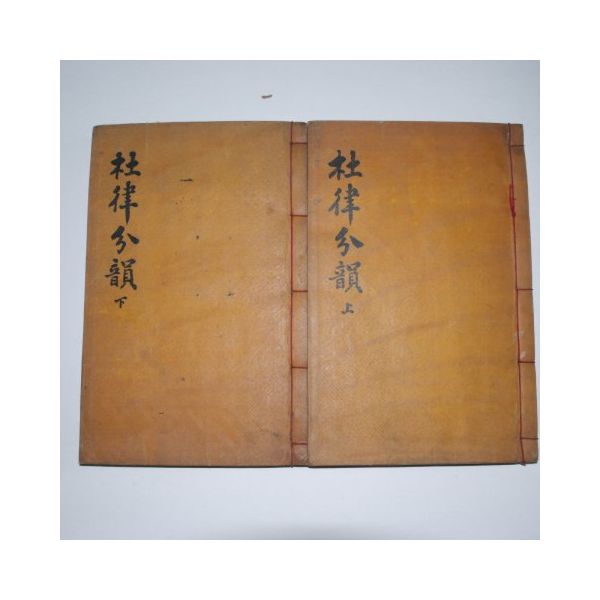 杜律分韻 上
杜律分韻 下